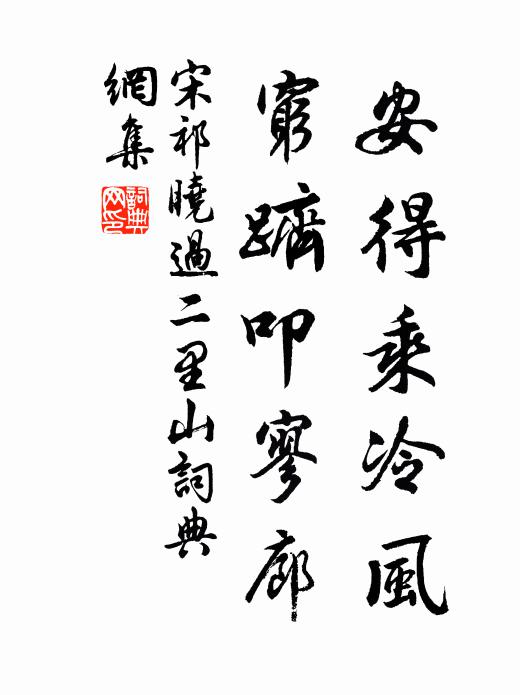 安得乘冷風
窮躋叩寥廓
宋祁曉過二里山詞典
網集
詞典網印